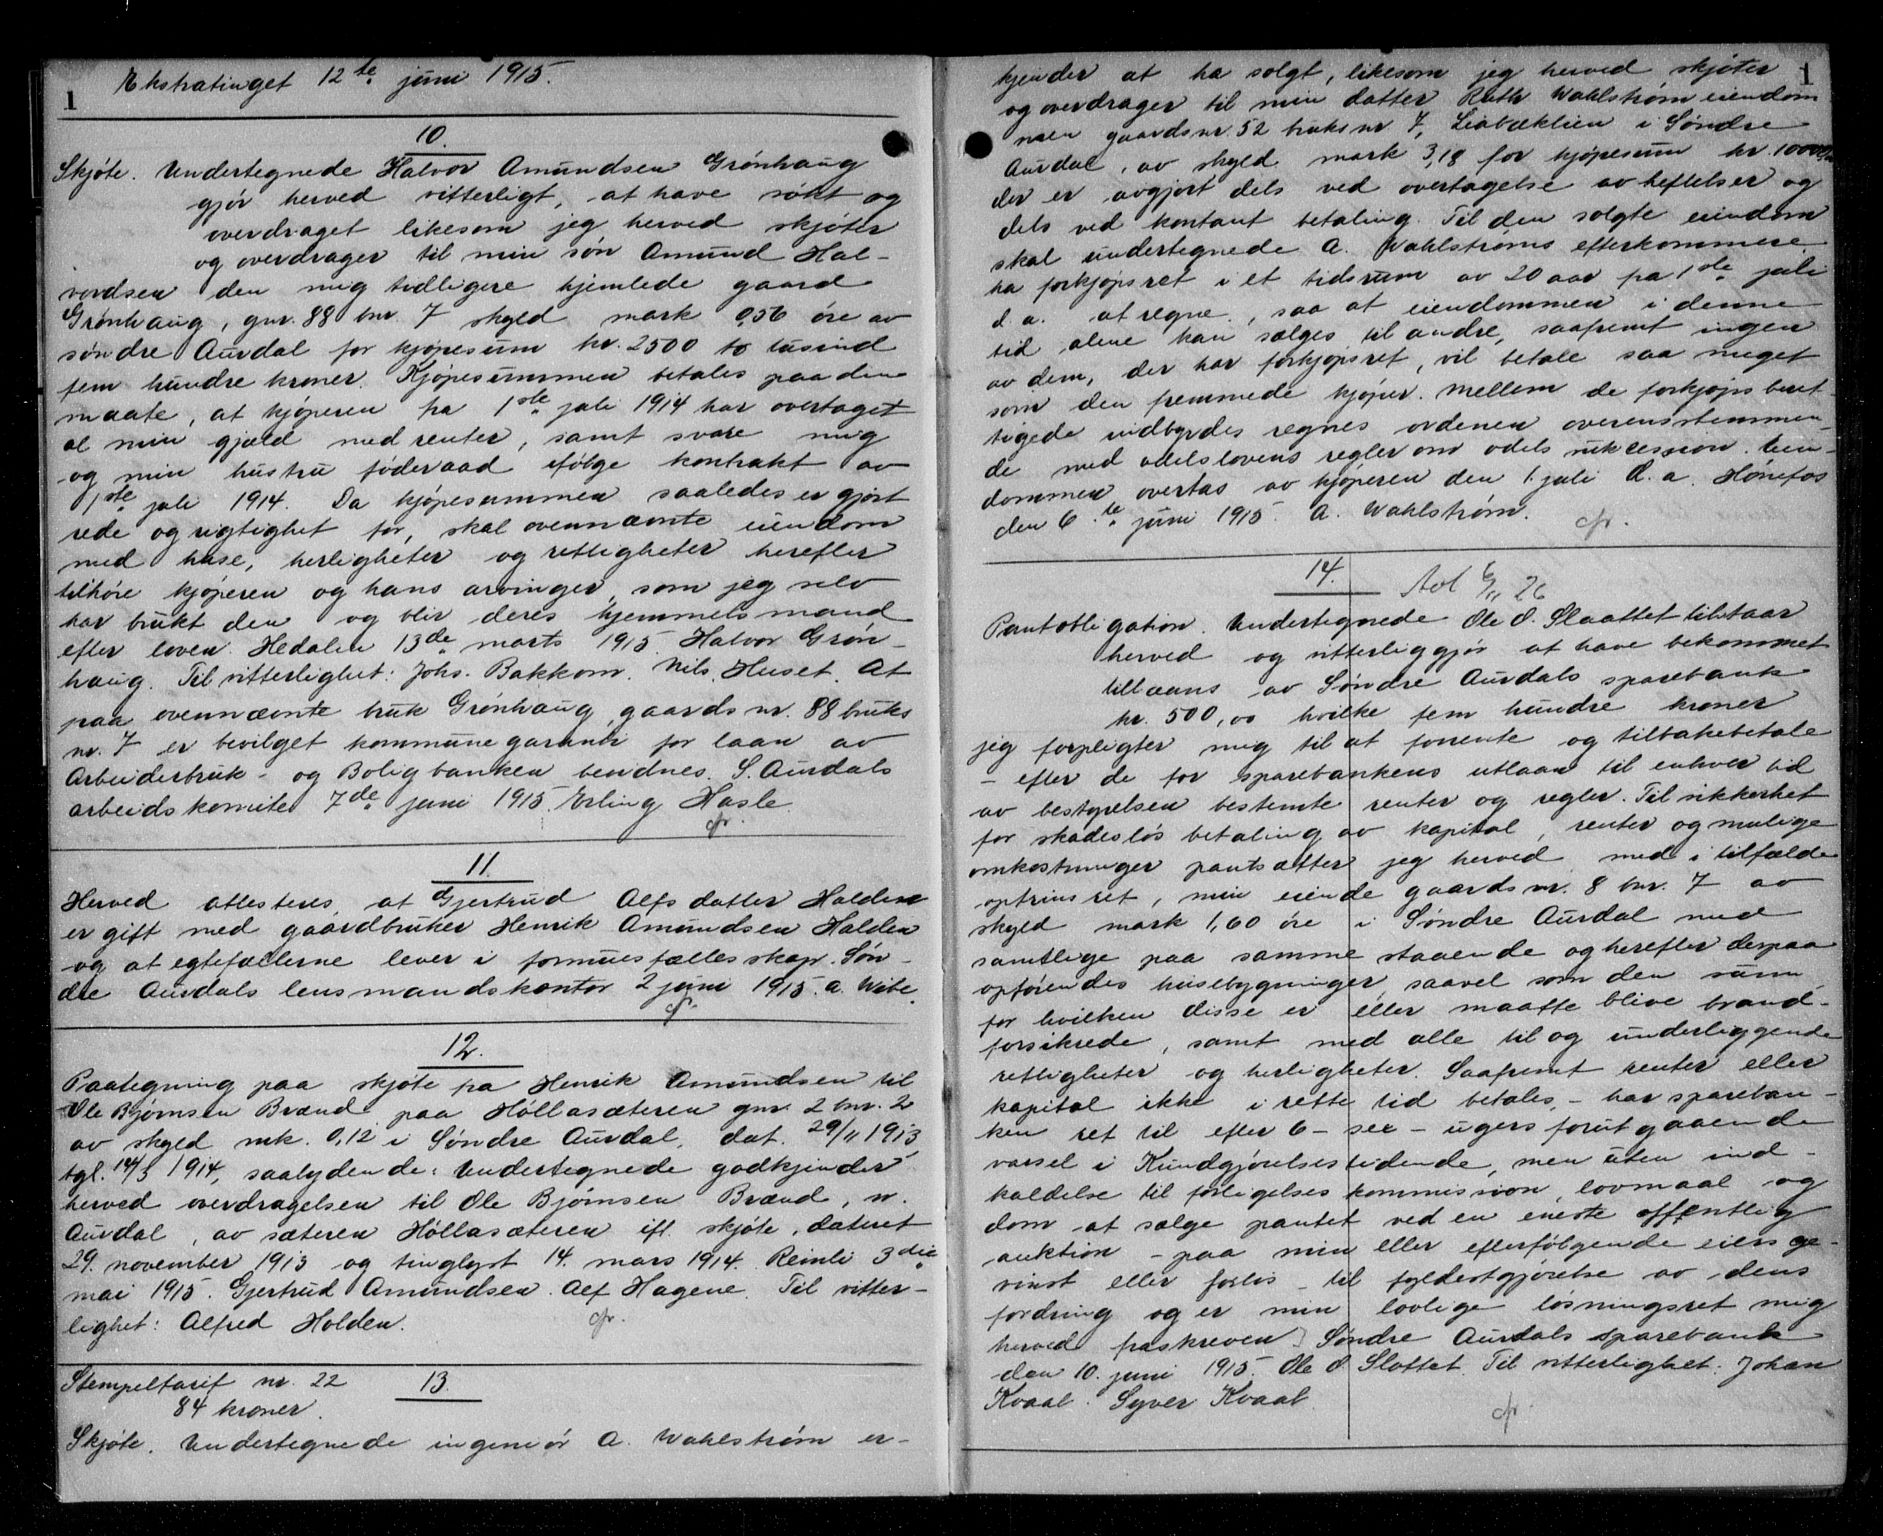 1
Ekstratinget 12te juni 1915.
10.
Skjøte. Undertegnede Halvor Amundsen Grønhaug
gjør herved vitterligt, at have solt og
overdraget likesom jeg herved skjøter
og overdrager til min søn Amund Hal-
vordsen den mig tidligere hjemlede gaard
Grønhaug, gnr. 88 bnr. 7 skyld mark 0,56 øre av
søndre Aurdal for kjøpesum kr. 2500 to tusind
fem hundre kroner. Kjøpesummen betales paa den
maate, at kjøperen fra 1ste juli 1914 har overtaget
al min gjæld med renter, samt svare mig
og min hustru føderaad ifølge kontrakt av
1ste juli 1914. Da kjøpesummen saaledes er gjort
rede og rigtighet for, skal ovennævnte eiendom
med huse, herligheter og rettigheter herefter
tilhøre kjøperen og hans arvinger som jeg selv
har brukt den og blir deres hjemmelsmand
efter loven. Hedalen 13de marts 1915. Halvor Grøn-
haug. Til vitterlighet: Johs. Bakkom. Nils Huset. At
paa ovennævnte bruk Grønhaug, gaards nr. 88 bruks
nr. 7 er bevilget kommunegaranti for laan av
Arbeiderbruk- og Boligbanken bevidnes. S. Aurdals
arbeidskomite 7de juni 1915. Erling Hasle.
cfr.
11.
Herved attesteres at Gjertrud Alfsdatter Halden
er gift med gaardbruker Henrik Amundsen Halden
og at egtefællerne lever i formuesfællesskap. Søn-
dre Aurdals lensmandskontor 2 juni 1915. A. Wibe.
cfr.
12.
Paategning paa skjøte fra Henrik Amundsen til
Ole Bjørnsen Brænd paa Høllasæteren gnr. 2 bnr. 2
av skyld mk. 0,12 i Søndre Aurdal, dat. 29/11 1913
tgl. 14/3 1914, saalydende: Undertegnede godkjender
herved overdragelsen til Ole Bjørnsen Brænd, n.
Aurdal, av sæteren Høllasæteren ifl. skjøte, dateret
29. november 1913 og tinglyst 14. mars 1914. Reinli 3die
mai 1915. Gjertrud Amundsen. Alf Hagene. Til vitter-
lighet: Alfred Holden.
cfr.
Stempeltarif nr. 22 13.
84 kroner.
Skjøte. Undertegnede ingeniør A. Wahlstrøm er-
1
kjender at ha solgt, likesom jeg herved skjøter
og overdrager til min datter Ruth Wahlstrøm eiendom
men gaardsnr. 52 bruksnr 7, Liabæklien i Søndre
Aurdal, av skyld mark 3,18 for kjøpesum kr. 10000
der er avgjort dels ved overtagelse av heftelser og
dels ved kontant betaling. Til den solgte eiendom
skal undertegnede A. Wahlstrøms efterkommere
ha forkjøpsret i et tidsrum av 20 aar fra 1ste juli
d. a. at regne, saa at eiendommen i denne
tid alene kan sælges til andre, saafremt ingen
av dem, der har forkjøpsret, vil betale saa meget
som den fremmede kjøper. Mellem de forkjøpsberet-
tigede indbyrdes regnes ordenen overensstemmen-
de med odelslovens regler om odelssukcession. Eien-
dommen overtas av kjøperen den 1. juli d. a. Hønefos
den 6te juni 1915. A. Wahlstrøm.
cfr.
14.
Avl 6/11 26
Pantobligation. Undertegnede Ole O. Slaattet tilstaar
herved og vitterliggjør at have bekommet
tillaans av Søndre Aurdals sparebank
kr. 500,00 hvilke fem hundre kroner
jeg forpligter mig til at forrente og tilbakebetale
- efter de for sparebankens utlaan til enhver tid
av bestyrelsen bestemte renter og regler. Til sikkerhet
for skadesløs betaling av kapital, renter og mulige
omkostninger pantsætter jeg herved med i tilfælde
optrinsret, min eiende gaardsnr. 8 bnr. 7 av
skyld mark 1,60 øre i Søndre Aurdal med
samtlige paa samme staaende og herefter derpaa
opførendes husebygninger saavel som den sum
for hvilken disse er eller maatte blive brand-
forsikrede, samt med alle til og underliggende
rettigheter og herligheter. Saafremt renter eller
kapital ikke i rette tid betales, - har spareban-
ken ret til efter 6- sex - ugers forutgaaende
varsel i Kundgjørelsestidende, men uten ind-
kaldelse til forligelseskommission, lovmaal og
dom at sælge pantet ved en eneste offentlig
auktion - paa min eller efterfølgende eiers ge-
vinst eller forlis - til fyldestgjørelse av dens
fordring og er min lovlige løsningsret mig
herved fraskreven. Søndre Aurdals sparebank
den 10. juni 1915. Ole O. Slottet. Til vitterlighet: Johan
Kvaal. Syver Kvaal.
cfr.